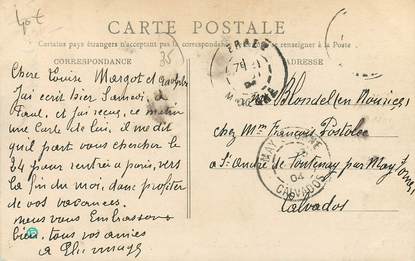 CARTE POSTALE
Certains pays étrangers n'acceptent pas la correspondance se renseigner à la Poste.
CORRESPONDANCE
ADRESSE
35
Chere Louise Margot et
J'ai ecrit hier Samedi, a
Paul, et j'ai reçu, ce matin
une Carte de lui, il me dit
qu'il part vous chercher le
24 pour rentré a paris, vers
la fin du moi, donc profiter
de vos vacances.
nous vous Embrassons
bien, tous vos amies
Blondel (en Nourice)
chez Mme François
a St André de Fontenay par May
Calvados
MAY 04
CALVADOS